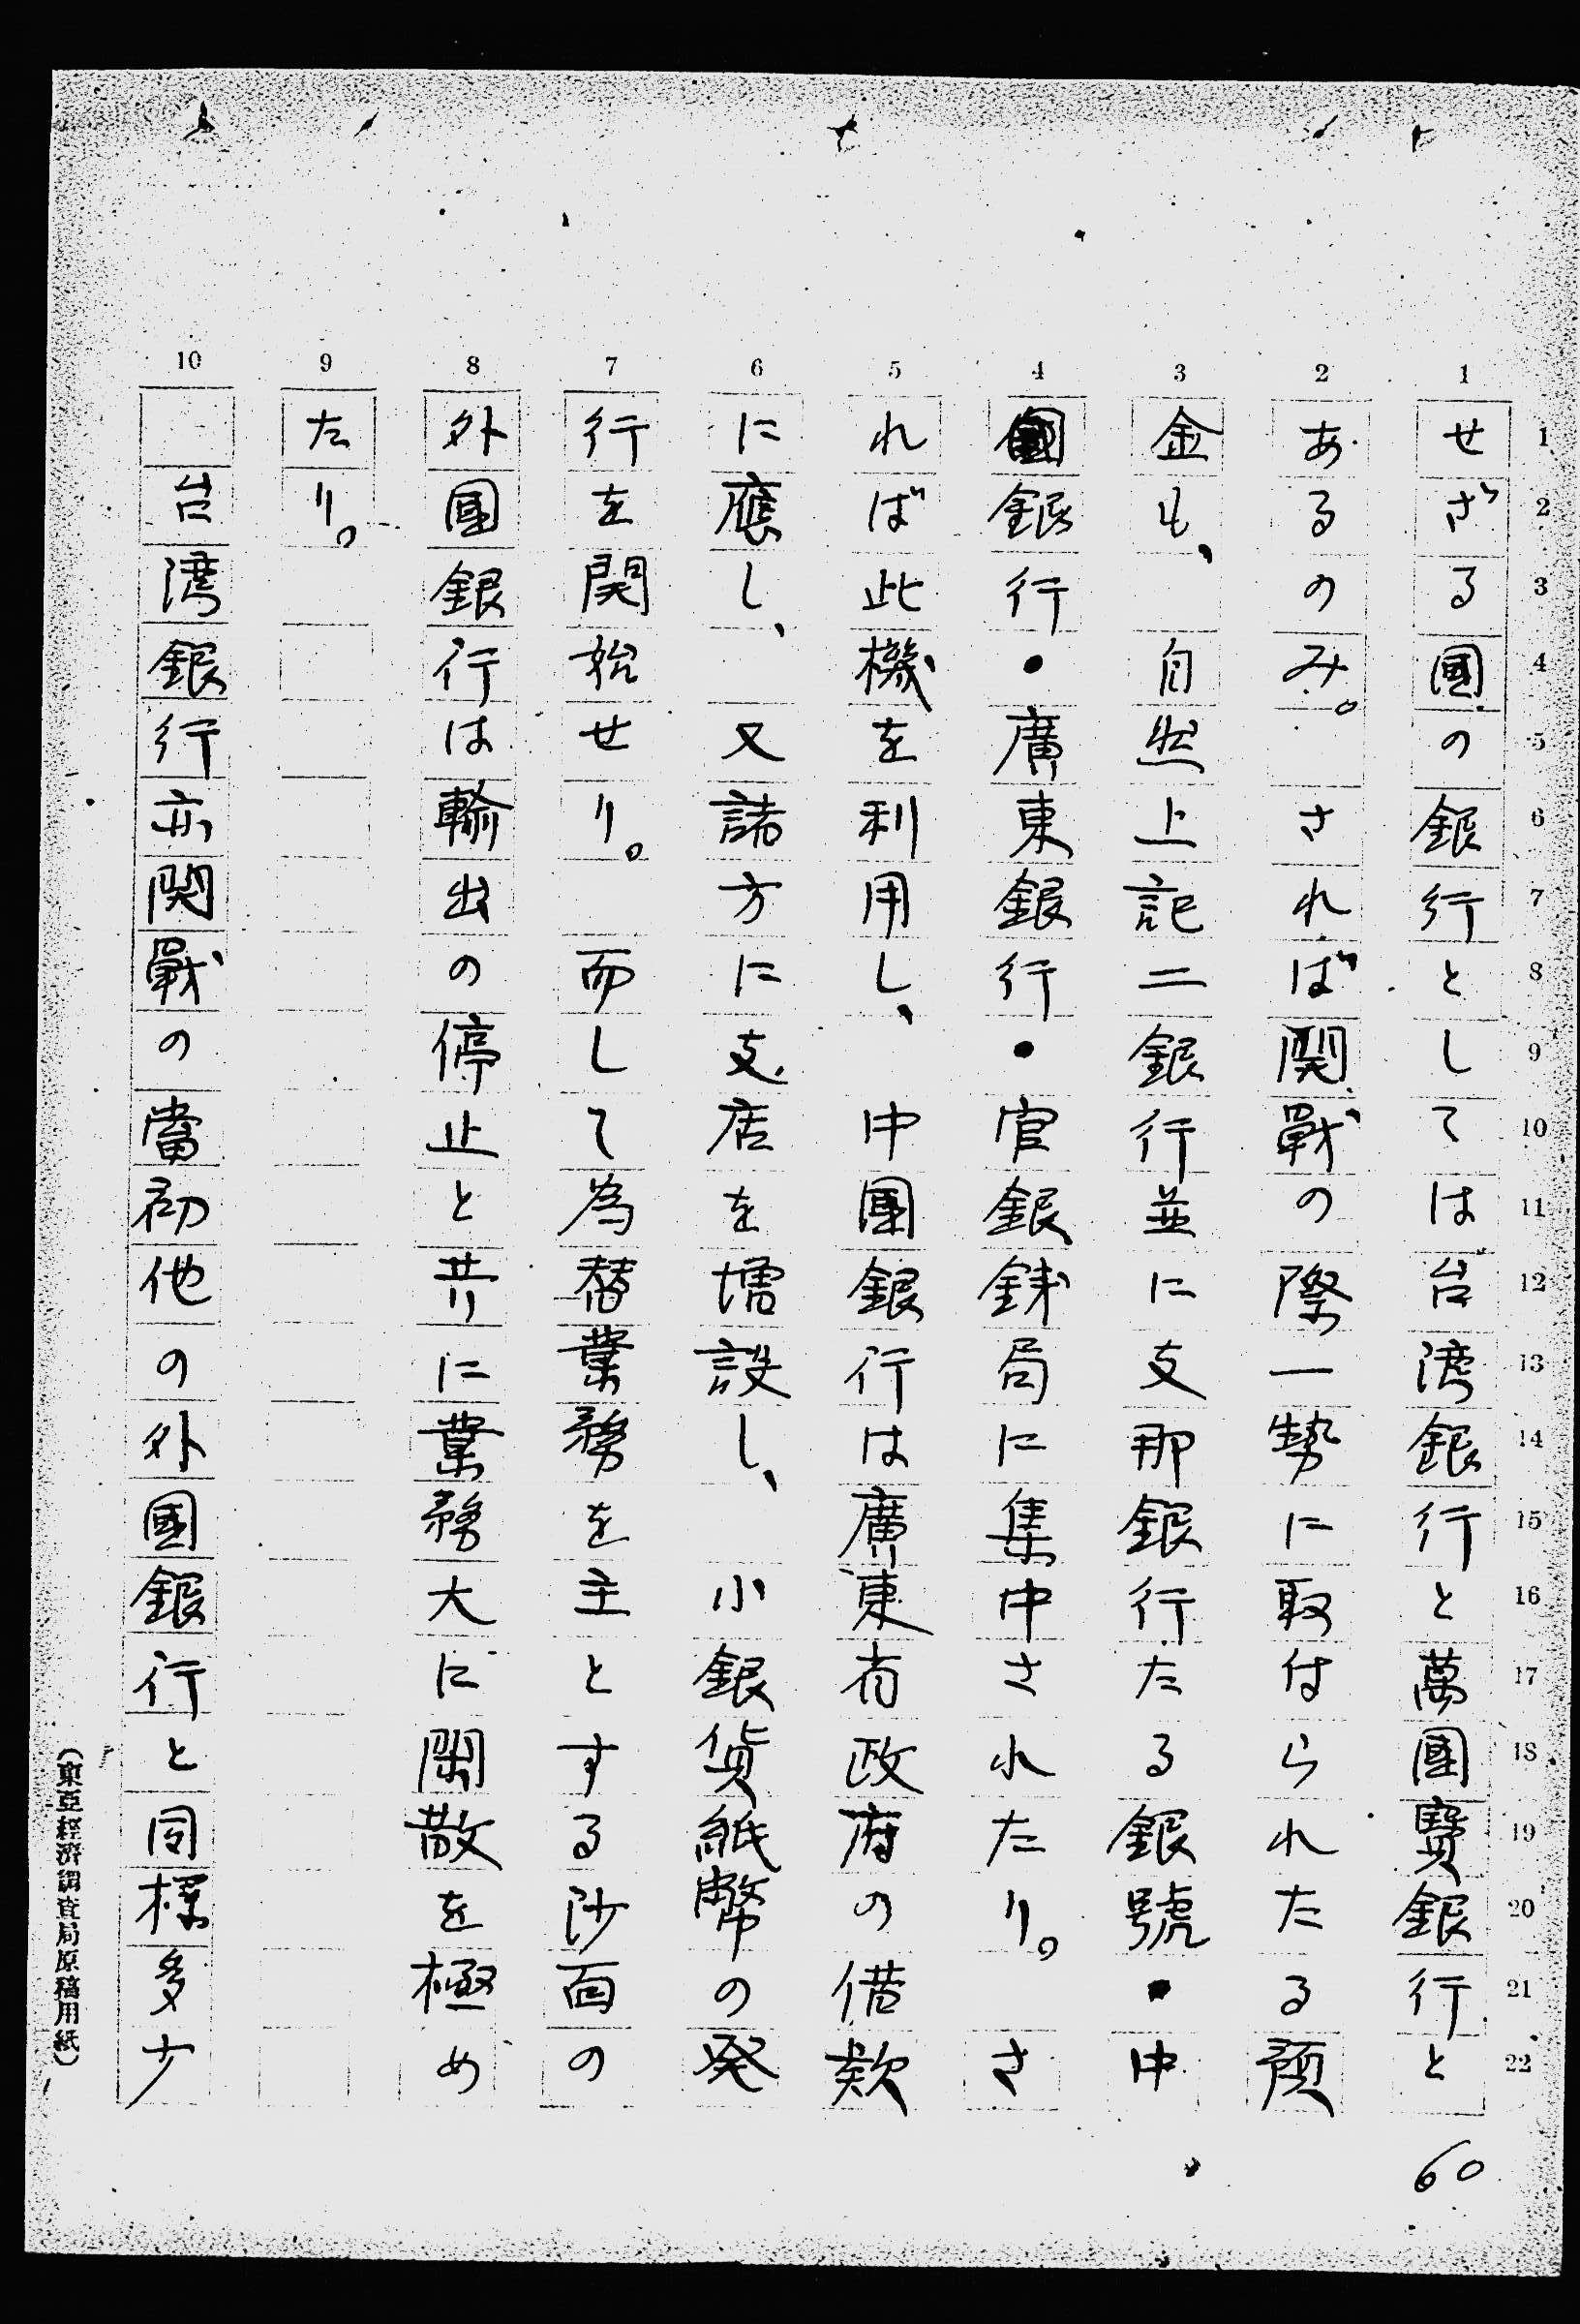 1 2 3 4 5 6 7 8 9 10
1 2 3 4 5 6 7 8 9 10 11 12 13 14 15 16 17 18 19 20 21 22
せざる國の銀行としては台湾銀行と萬國寶銀行と
あるのみ。されば開戰の際一勢に取付られたる預
金も、自然上記二銀行並に支那銀行たる銀號・中
國銀行・廣東銀行・官銀銭局に集中されたり。さ
れば此機を利用し、中國銀行は廣東省政府の借款
に應し、又諸方に支店を増設し、小銀貨紙幣の発
行を開始せり。而して為替業務を主とする沙面の
外國銀行は輸出の停止と共に業務大に閑散を極め
たり。
台湾銀行亦開戰の當初他の外國銀行と同様多少
60
(東亞經濟調査局原稿用紙)